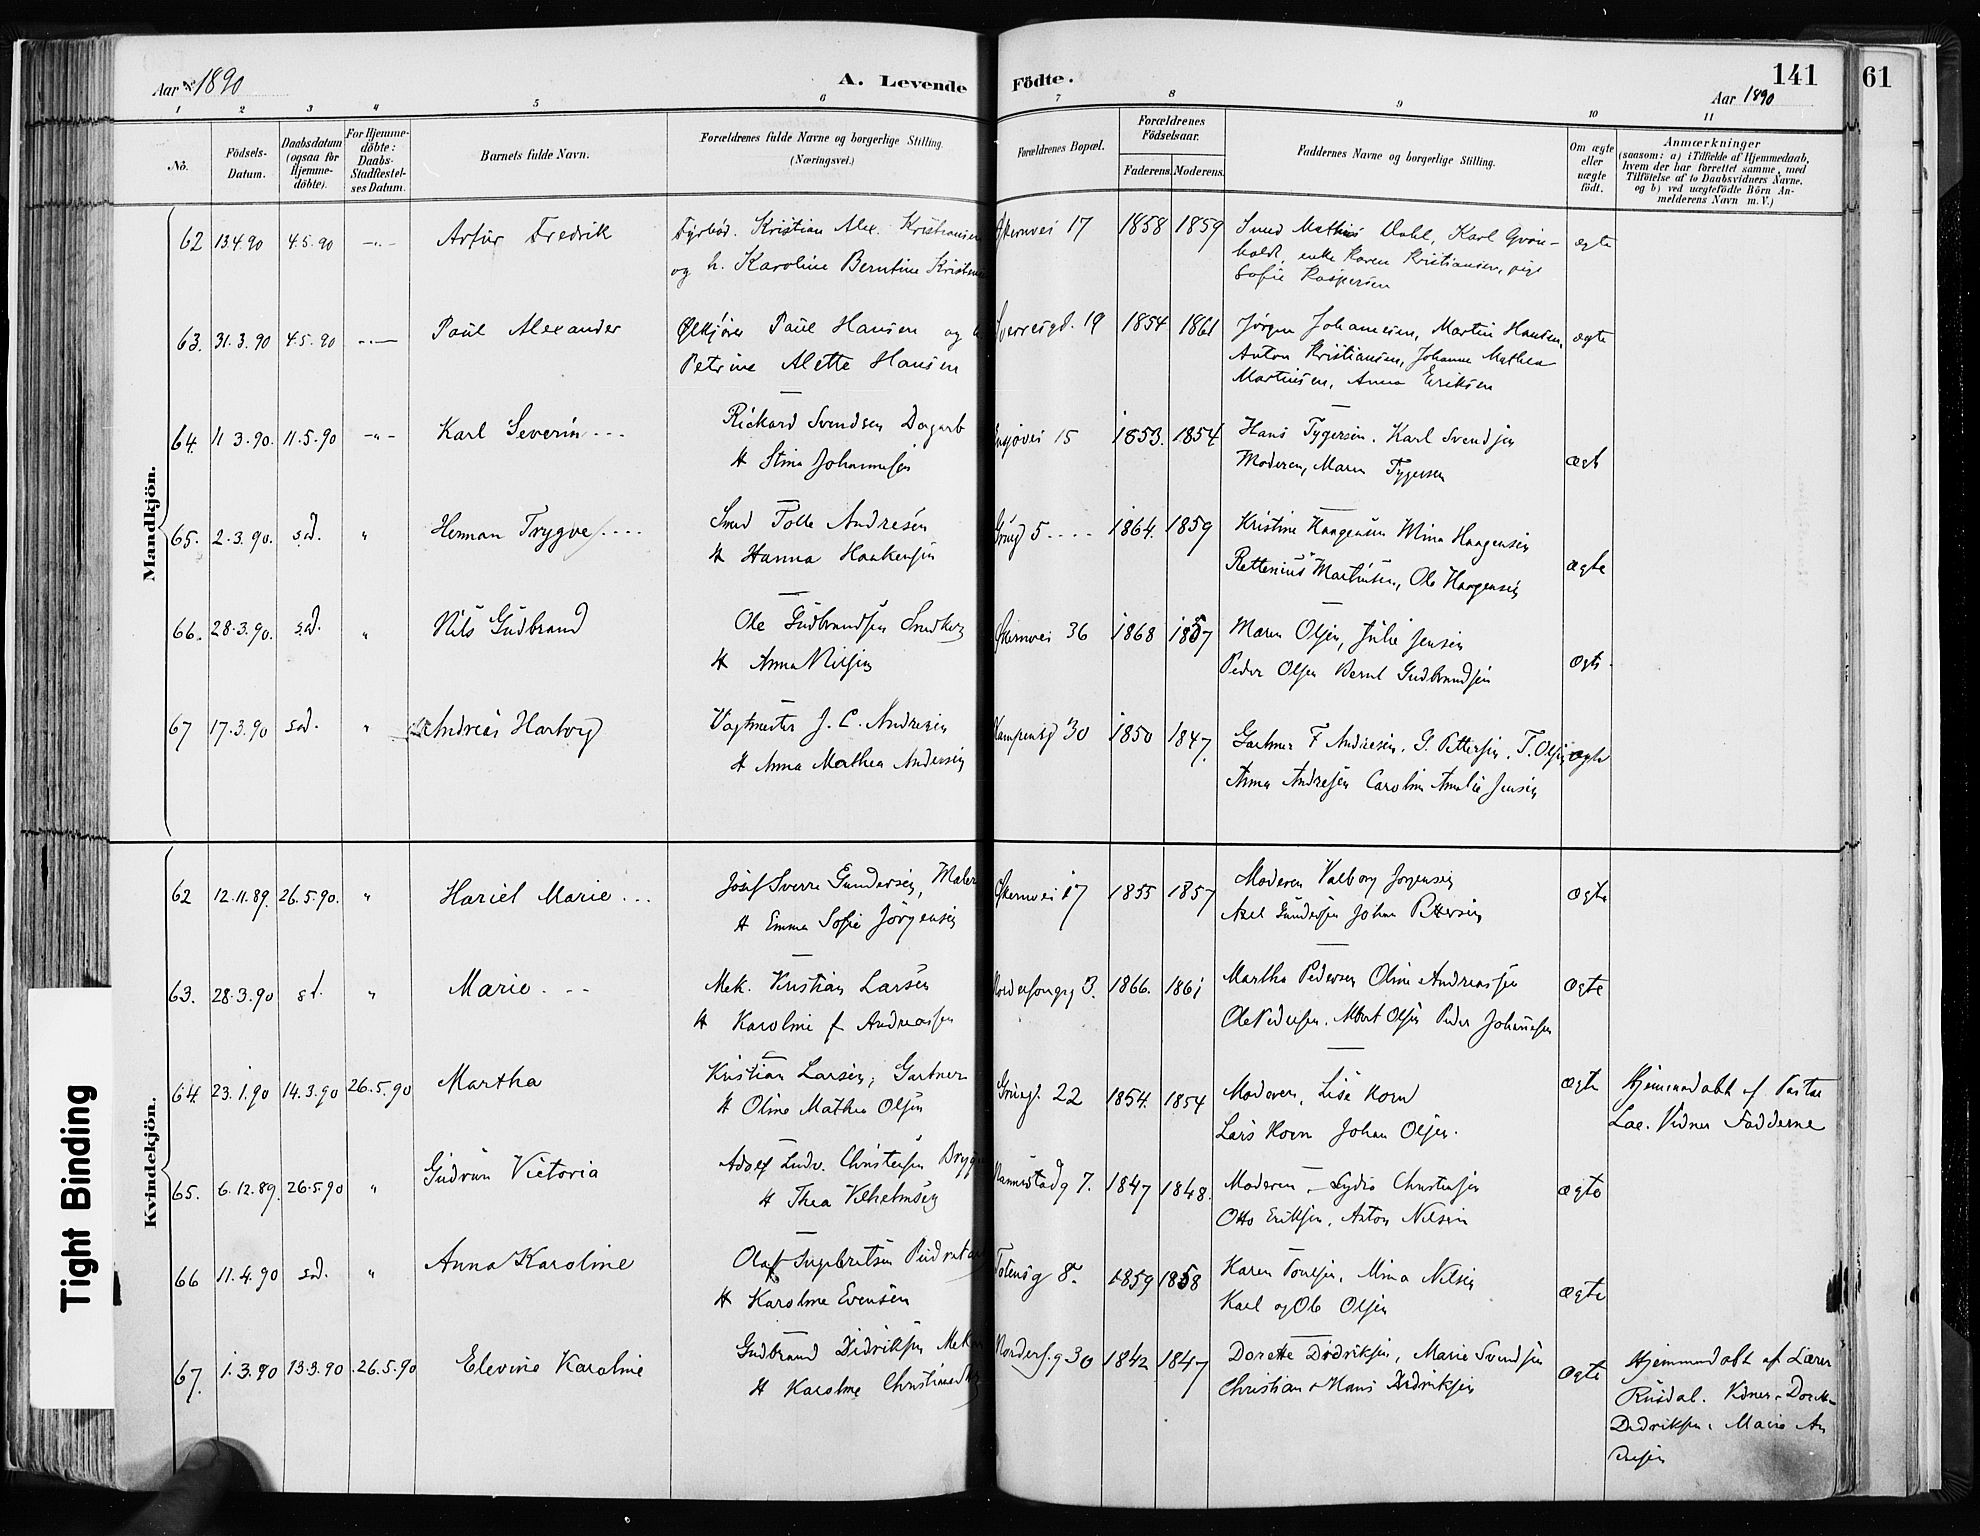 Aar 1890
A. Levende Födte.
141
61
Aar 1890
1 2 3 4 5 6 7 8 9 10 11
No.
Födsels-Datum.
Daabsdatum (ogsaa for Hjemme-döbte).
For Hjemme-döbte: Daabs-Stadfæstel-ses Datum.
Barnets fulde Navn.
Forældrenes fulde Navne og borgerlige Stilling. (Næringsvei.)
Forældrenes Bopæl.
Forældrenes Födselsaar.
Faderens. Moderens.
Faddernes Navne og borgerlige Stilling.
Om ægte eller uægte födt.
Anmærkninger
(saasom: a) i Tilfælde af Hjemmedaab,
hvem der har forrettet samme, med
Tilföielse af to Daabsvidners Navne,
og b) ved uægtefödte Börn An-
melderens Navn m. V.)
Mandkjön.
62 13.4.90 4.5.90 -"- Artur Fredrik Fyrbød. Kristian Alex. Kristiansen 17 1858 1859 Smed Mathias Dahl, Karl Gron- ægte
og h. Karoline Berntine holdt, enke Karen Kristiansen, pige
Sofie Kaspersen
63. 31.3.90 4.5.90 -"- Paul Alexander Ølkjører Paul Hansen og Sverresgd. 19 1854 1861 Jørgen Johannesen, Martin Hansen, ægte
Petrine Alette Hansen Anton Kristiansen, Johanne Mathea
Martinsen, Anna Eriksen
64. 11.3.90. 11.5.90 -"- Karl Severin Rickard Svendsen Dagarb Ensjøvei 15 1853. 1854 Hans Tygersen. Karl Svendsen
H Stina Johannesen Moderen, Maren Tygersen ægt
65. 2.3.90. sd. " Herman Trygve Smed Tolle Andresen Grüng 5 1864. 1859 Kristine Haagensen Mina Haagensen
H Hanna Haakensen Martinsen, Ole Haagensen ægte
66. 28.3.90. sd. " Nils Gudbrand Ole Gudbrandsen 36 1868 1857 Maren Olsen, Julie Jensen
H Anna Nilsen Peder Olsen Bernt Gudbrandsen ægte
67 17.3.90 sd. " Andreas Hartvig Vagtmester J. C. Andresen Kampensg 30 1850 1847. Gartner F Andresen. G. Pettersen. T. Olsen ægte
H Anna Mathea Andersen Anna Andresen Caroline Amalie Jensen
Kvindekjön.
62 12.11.89. 26.5.90. " Hariel Marie Josef Sverre Gundersen, Maler 17 1855 1857 Moderen Valborg Jorgensen ægte
H Emma Sofie Jörgensen Axel Gundersen Johan Pettersen
63. 28.3.90 sd. " Marie Mek. Kristian Larsen 3. 1866. 1861 Martha Pedersen Oline Andreassen ægte
H Karoline f Andreassen Ole Pedersen. Albert Olsen Peder Johansen
64. 23.1.90 14.3.90 26.5.90 Martha Kristian Larsen, Gartner Grüng. 22 1854. 1854 Moderen, Lise Korn ægte Hjemmedøbt af Pastor
H Oline Mathea Olsen Lars Korn Johan Olsen. Lae. Vidner Fadderne
65. 6.12.89. 26.5.90 " Gudrun Victoria Adolf Ludv. Christensen 7. 1847 1848. Moderen - Lydia Christensen ægte
H Thea Vilhelmsen Otto Eriksen, Anton Nilsen
66 11.4.90 sd. " Anna Karoline Olaf Ingebretsen Totensg 8. 1859 1858 Karen Mina Nilsen ægte
H Karoline Evensen Karl og Ole Olsen
67. 1.3.90 13.3.90 26.5.90 Elevine Karoline Gudbrand Didriksen Mek 30 1842 1847 Dorette Didriksen, Marie Svendsen ægte Hjemmedøbt af Lærer
H Karoline Christian Hans Didriksen Rüsdal. Vidner. Dorett
Didriksen. Marie An
dresen
Tight Binding